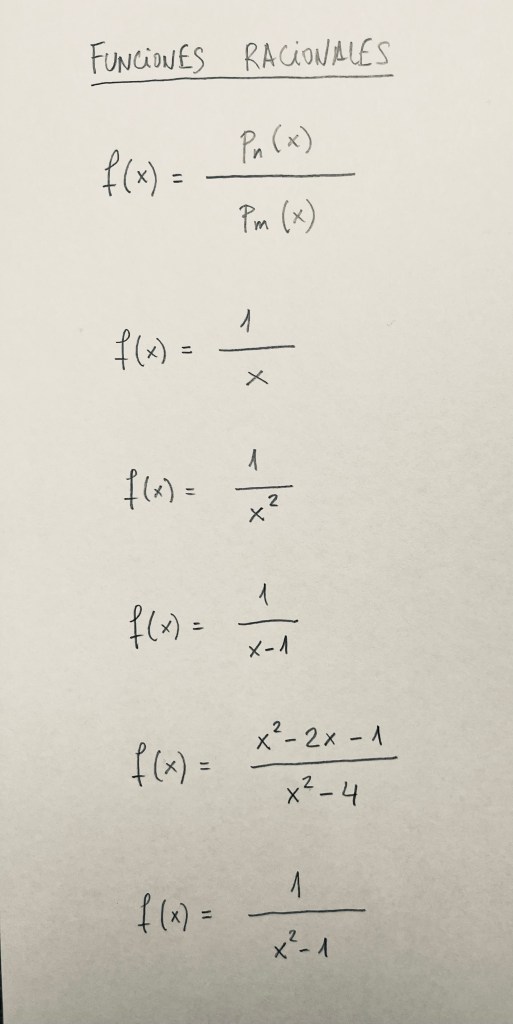 FUNCIONES RACIONALES
f(x) = Pn(x) / Pm(x)
f(x) = 1 / x
f(x) = 1 / x²
f(x) = 1 / x-1
f(x) = x²-2x-1 / x²-4
f(x) = 1 / x²-1